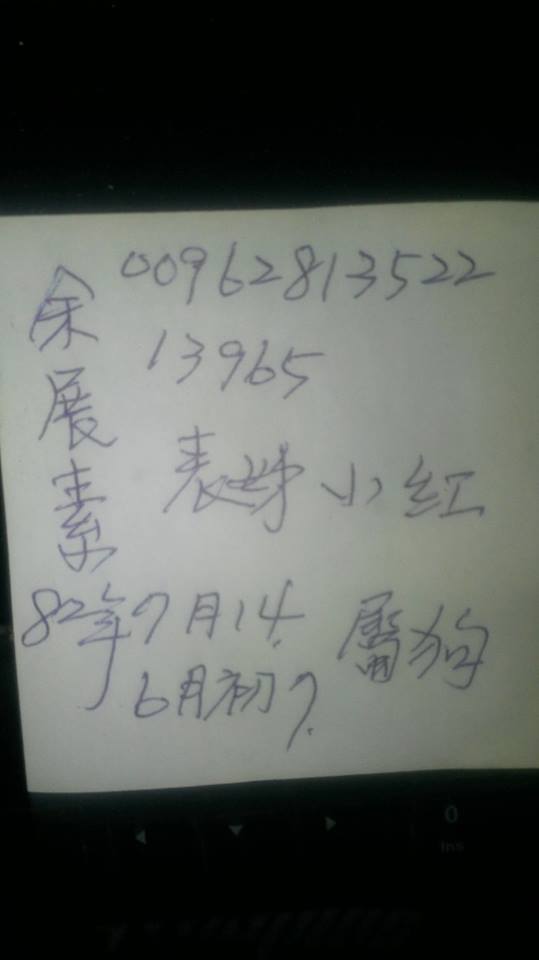 余展素
00962813522
13965
表梯小红
82年7月14.
6月初7.
属狗
0
Ins